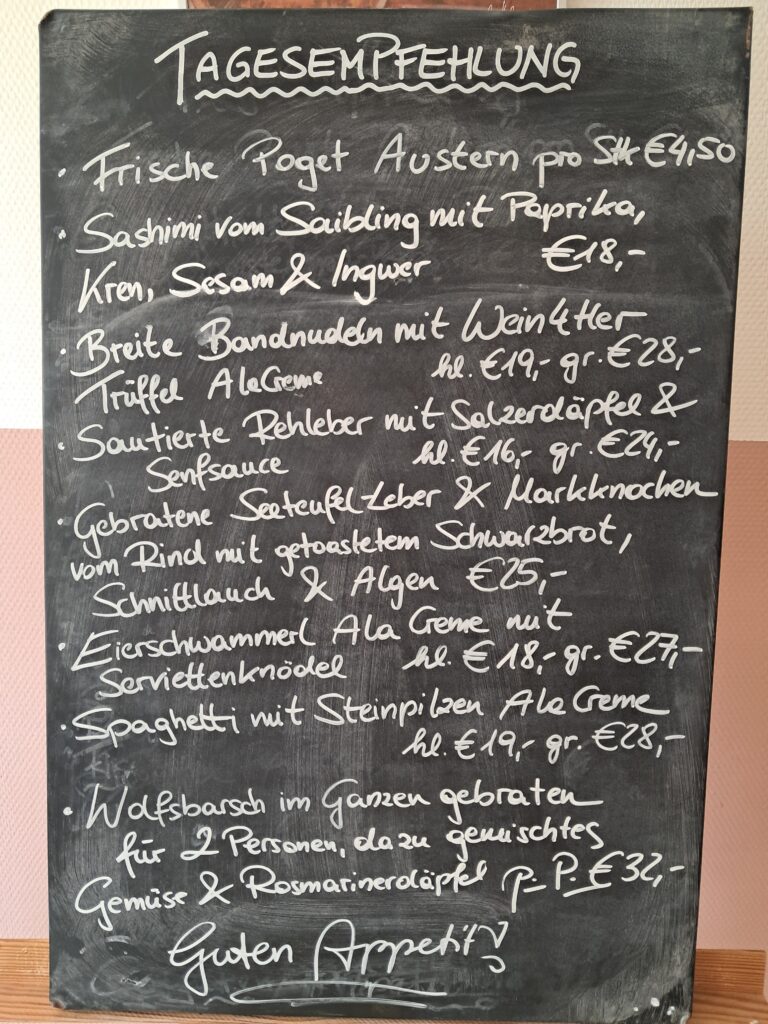 TAGESEMPFEHLUNG
· Frische Poget Austern pro Stk €4,50
· Sashimi vom Saibling mit Paprika,
Kren, Sesam & Ingwer €18,-
· Breite Bandnudeln mit Weinviertler
Trüffel Ala Creme kl. €19,- gr. €28,-
· Sautierte Rehleber mit Salzerdäpfel &
Senfsauce kl. €16,- gr. €24,-
· Gebratene Seeteufel-Leber & Markknochen
vom Rind mit getoastetem Schwarzbrot,
Schnittlauch & Algen €25,-
· Eierschwammerl Ala Creme mit
Serviettenknödel kl. €18,- gr. €27,-
· Spaghetti mit Steinpilzen Ala Creme
kl. €19,- gr. €28,-
· Wolfsbarsch im Ganzen gebraten
für 2 Personen, dazu gemischtes
Gemüse & Rosmarinerdäpfel p. P. €32,-
Guten Appetit!